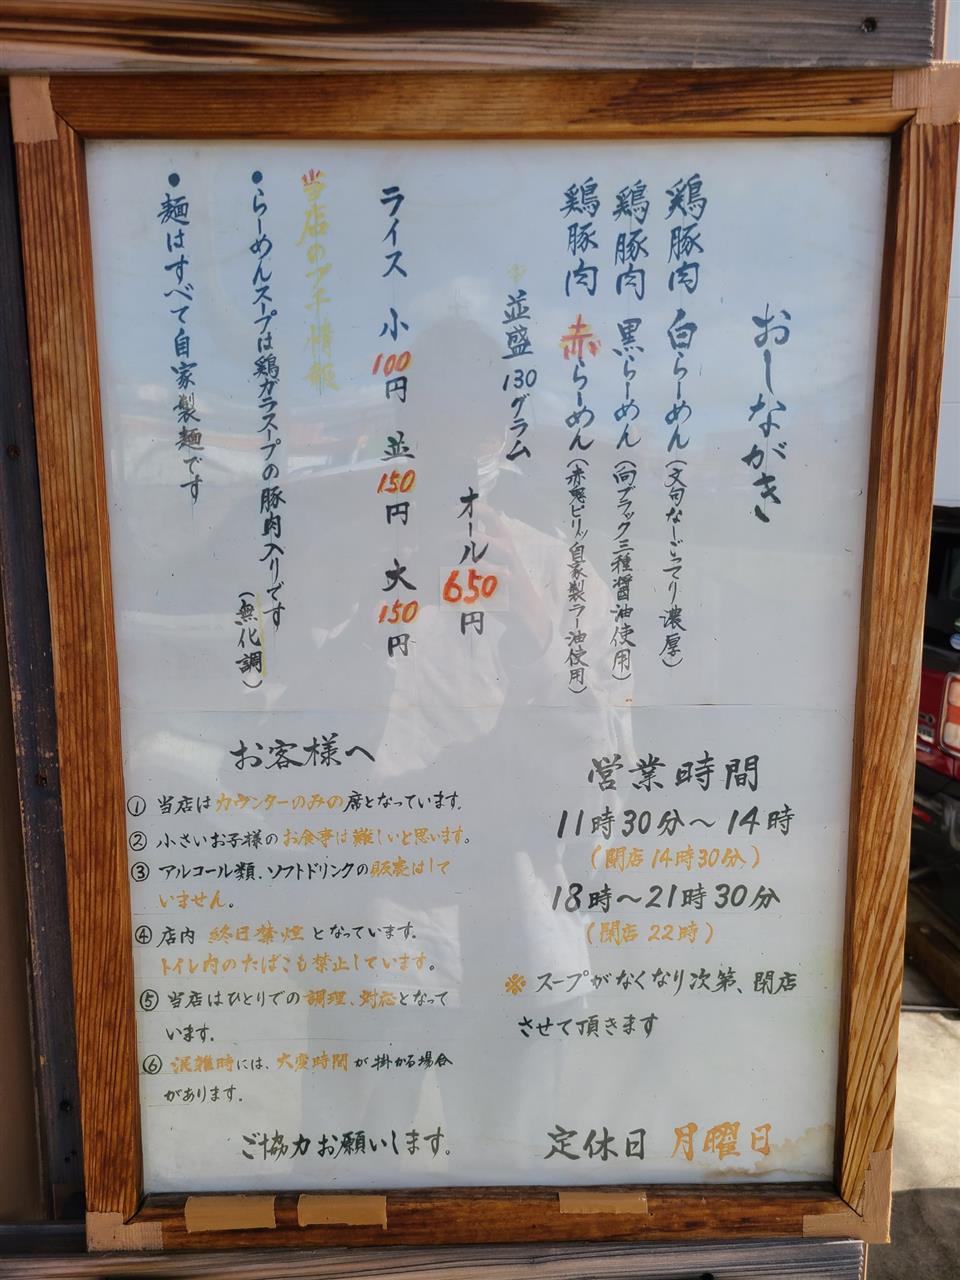 おしながき
鶏豚肉 白らーめん(文句なーごってり濃厚)
鶏豚肉 黒らーめん(向ブラック三種醤油使用)
鶏豚肉 赤らーめん(赤悪ピリッ自家製ラー油使用)
※並盛 130グラム
オール650円
ライス 小100円 並150円 大150円
当店のプチ情報
●らーめんスープは鶏ガラスープの豚肉入りです
(無化調)
●麺はすべて自家製麺です
営業時間
11時30分〜14時
(閉店14時30分)
18時〜21時30分
(閉店22時)
※スープがなくなり次第、閉店
させて頂きます
定休日 月曜日
お客様へ
① 当店はカウンターのみの席となっています。
② 小さいお子様のお食事は難しいと思います。
③ アルコール類、ソフトドリンクの販売はして
いません。
④ 店内 終日禁煙となっています。
トイレ内のたばこも禁止しています。
⑤ 当店はひとりでの調理、対応となって
います。
⑥ 混雑時には、大変時間が掛かる場合
があります。
ご協力お願いします。